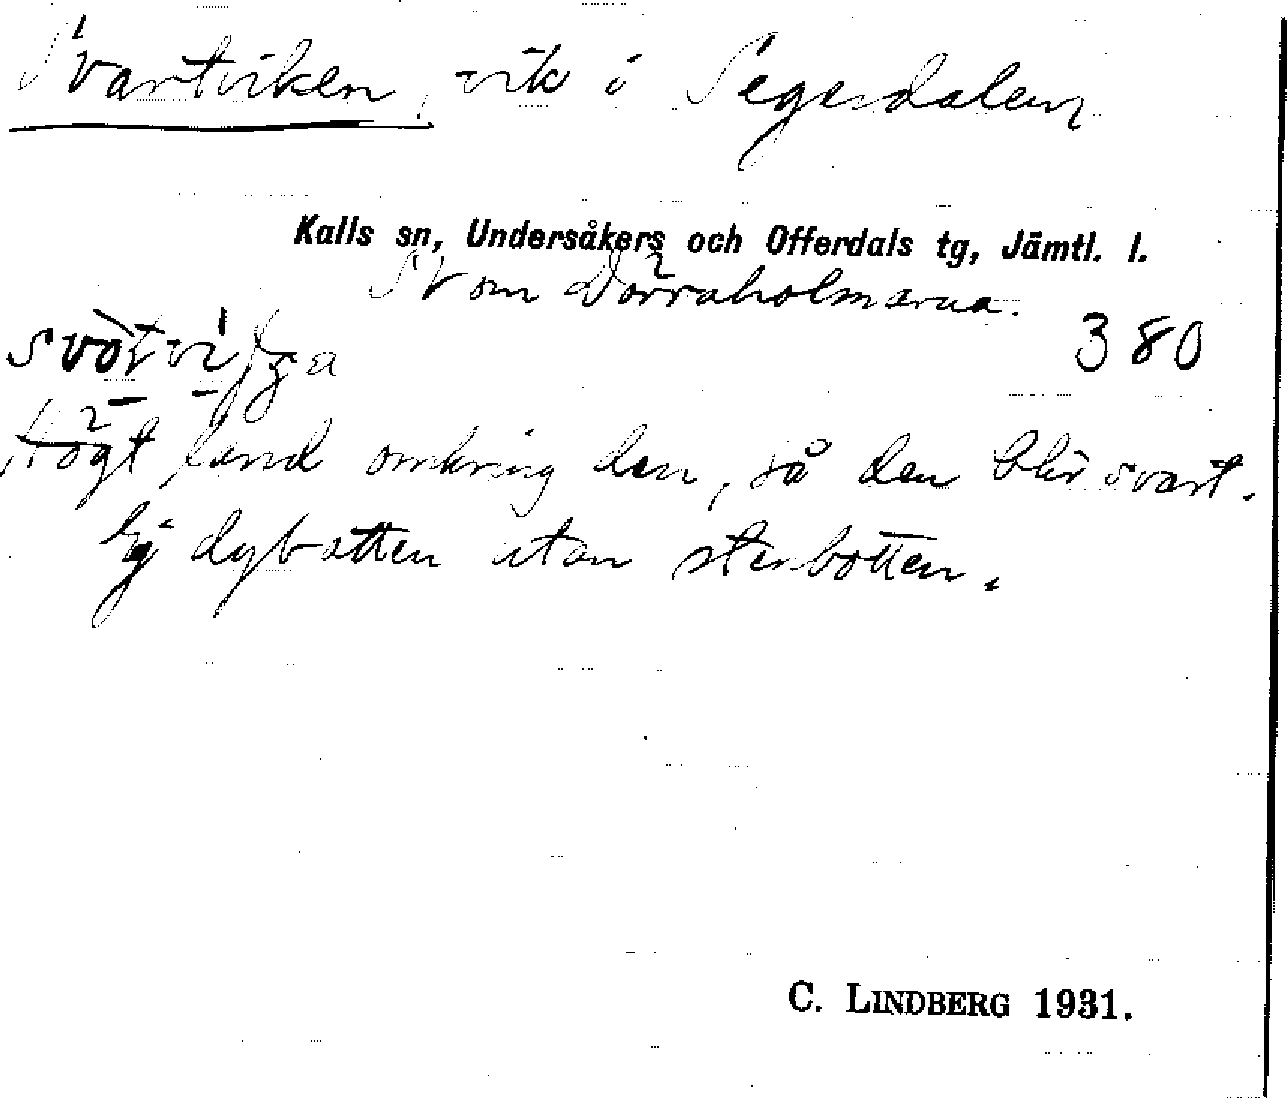 Svartviken, vik i Segerdalen
Kalls sn, Undersåkers och Offerdals tg, Jämtl. l.
SV om Dörraholmarna.
380
Högt land omkring den, så den blir svart.
Ej dybotten utan stenbotten.
C. LINDBERG 1931.